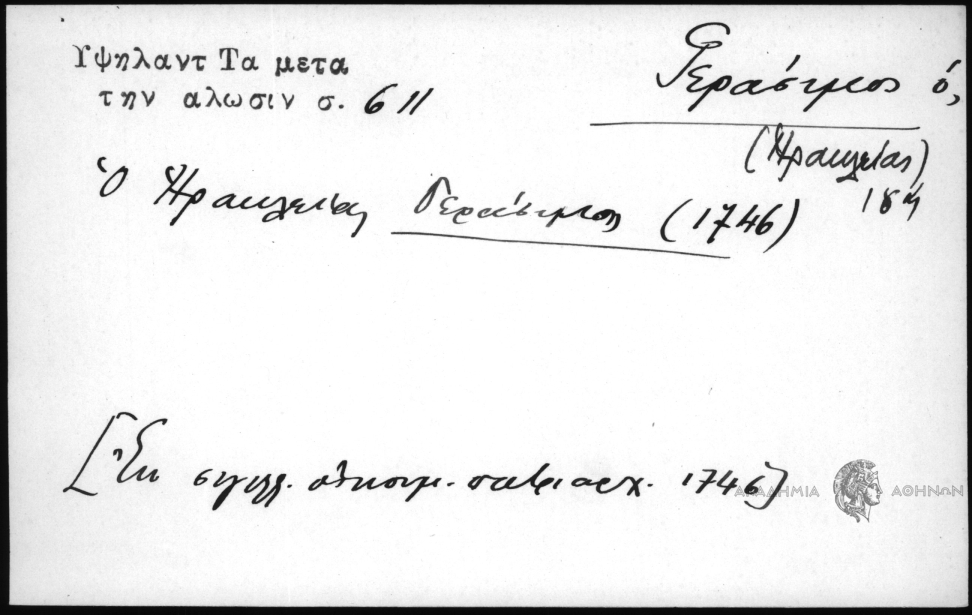 Υψηλαντ Τα μετα
την αλωσιν σ. 611
Γεράσιμος ὁ,
(Ἡρακλείας)
Ὁ Ἡρακλείας Γεράσιμος (1746)
[Ἐκ σιγιλλ. οἰκουμ. πατριαρχ. 1746]
ΑΚΑΔΗΜΙΑ ΑΘΗΝΩΝ